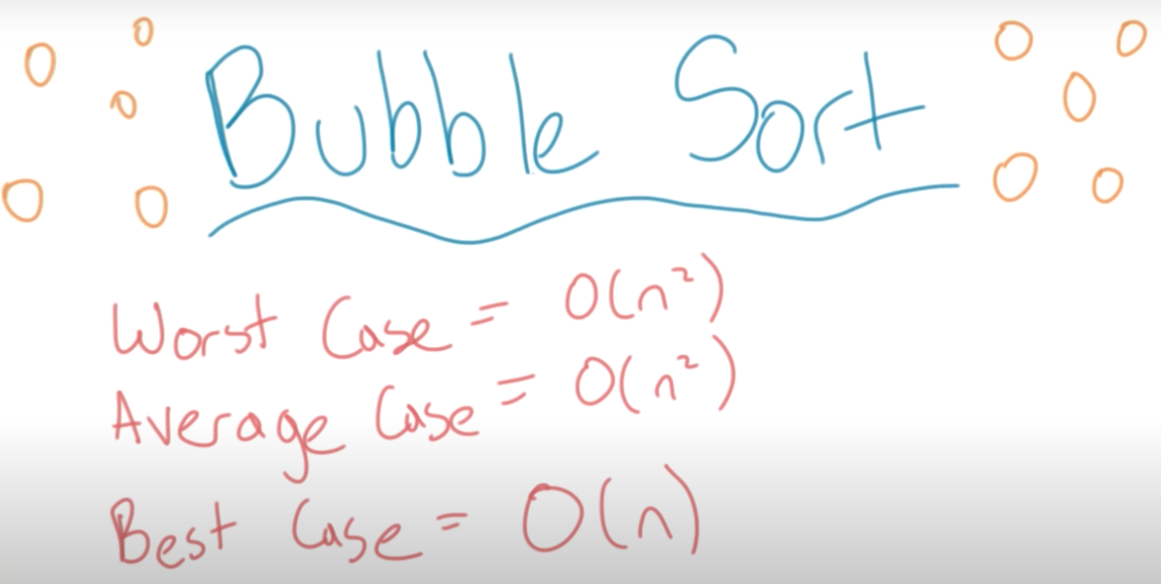 Bubble Sort
Worst Case = O(n²)
Average Case = O(n²)
Best Case = O(n)